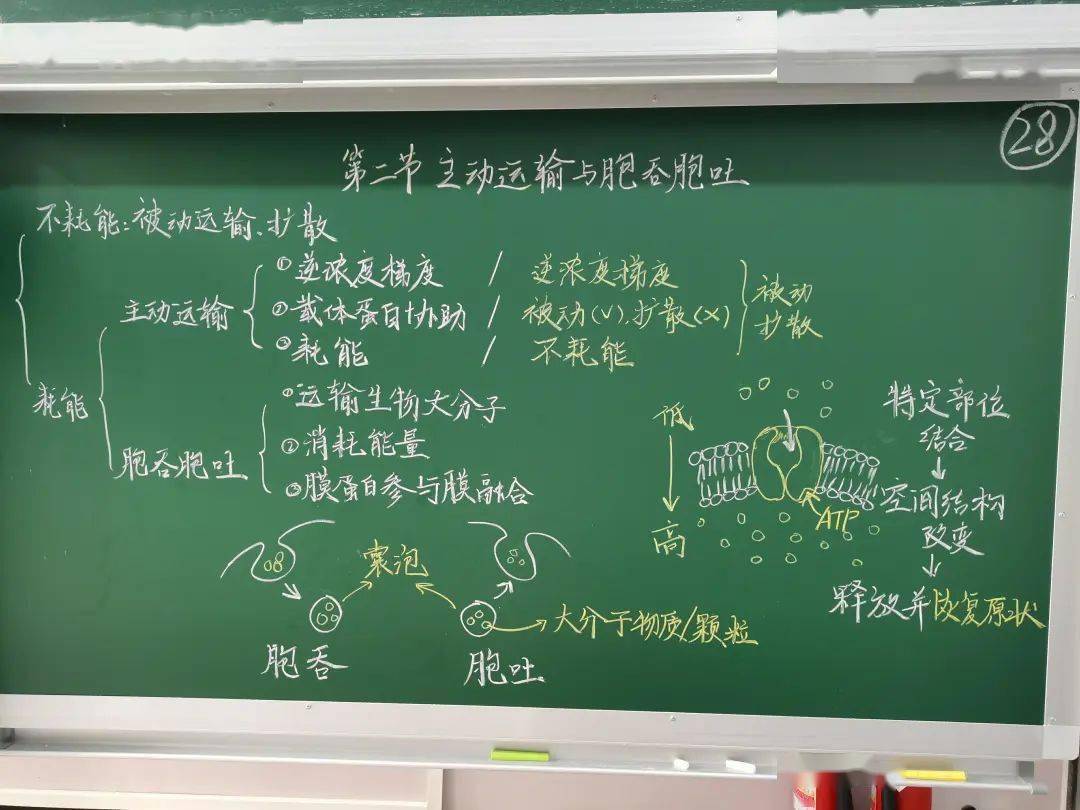 28
第二节 主动运输与胞吞胞吐
不耗能:被动运输、扩散
耗能
主动运输
①逆浓度梯度 / 逆浓度梯度
②载体蛋白协助 / 被动(√)、扩散(×)
③耗能 / 不耗能
被动
扩散
胞吞胞吐
①运输生物大分子
②消耗能量
③膜蛋白参与膜融合
囊泡
胞吞
胞吐
大分子物质/颗粒
低
高
ATP
特定部位
结合
空间结构
改变
释放并恢复原状